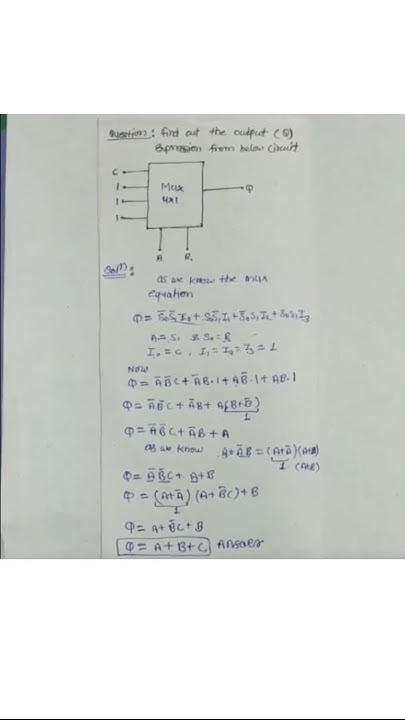 Question: find out the output (Q)
expression from below circuit
C
1
1
1
Mux
4x1
Q
A B
Soln:
as we know the mux
equation
Q = S̅₀S̅₁I₀ + S₀S̅₁I₁ + S̅₀S₁I₂ + S₀S₁I₃
A = S₁ & S₀ = B
I₀ = C, I₁ = I₂ = I₃ = 1
Now
Q = A̅B̅C + A̅B·1 + AB̅·1 + AB·1
Q = A̅B̅C + A̅B + A(B+B̅)
1
Q = A̅B̅C + A̅B + A
as we know A+A̅B = (A+A̅)(A+B)
1 (A+B)
Q = A̅B̅C + A+B
Q = (A+A̅) (A+B̅C) + B
1
Q = A+B̅C+B
Q = A+B+C Answer